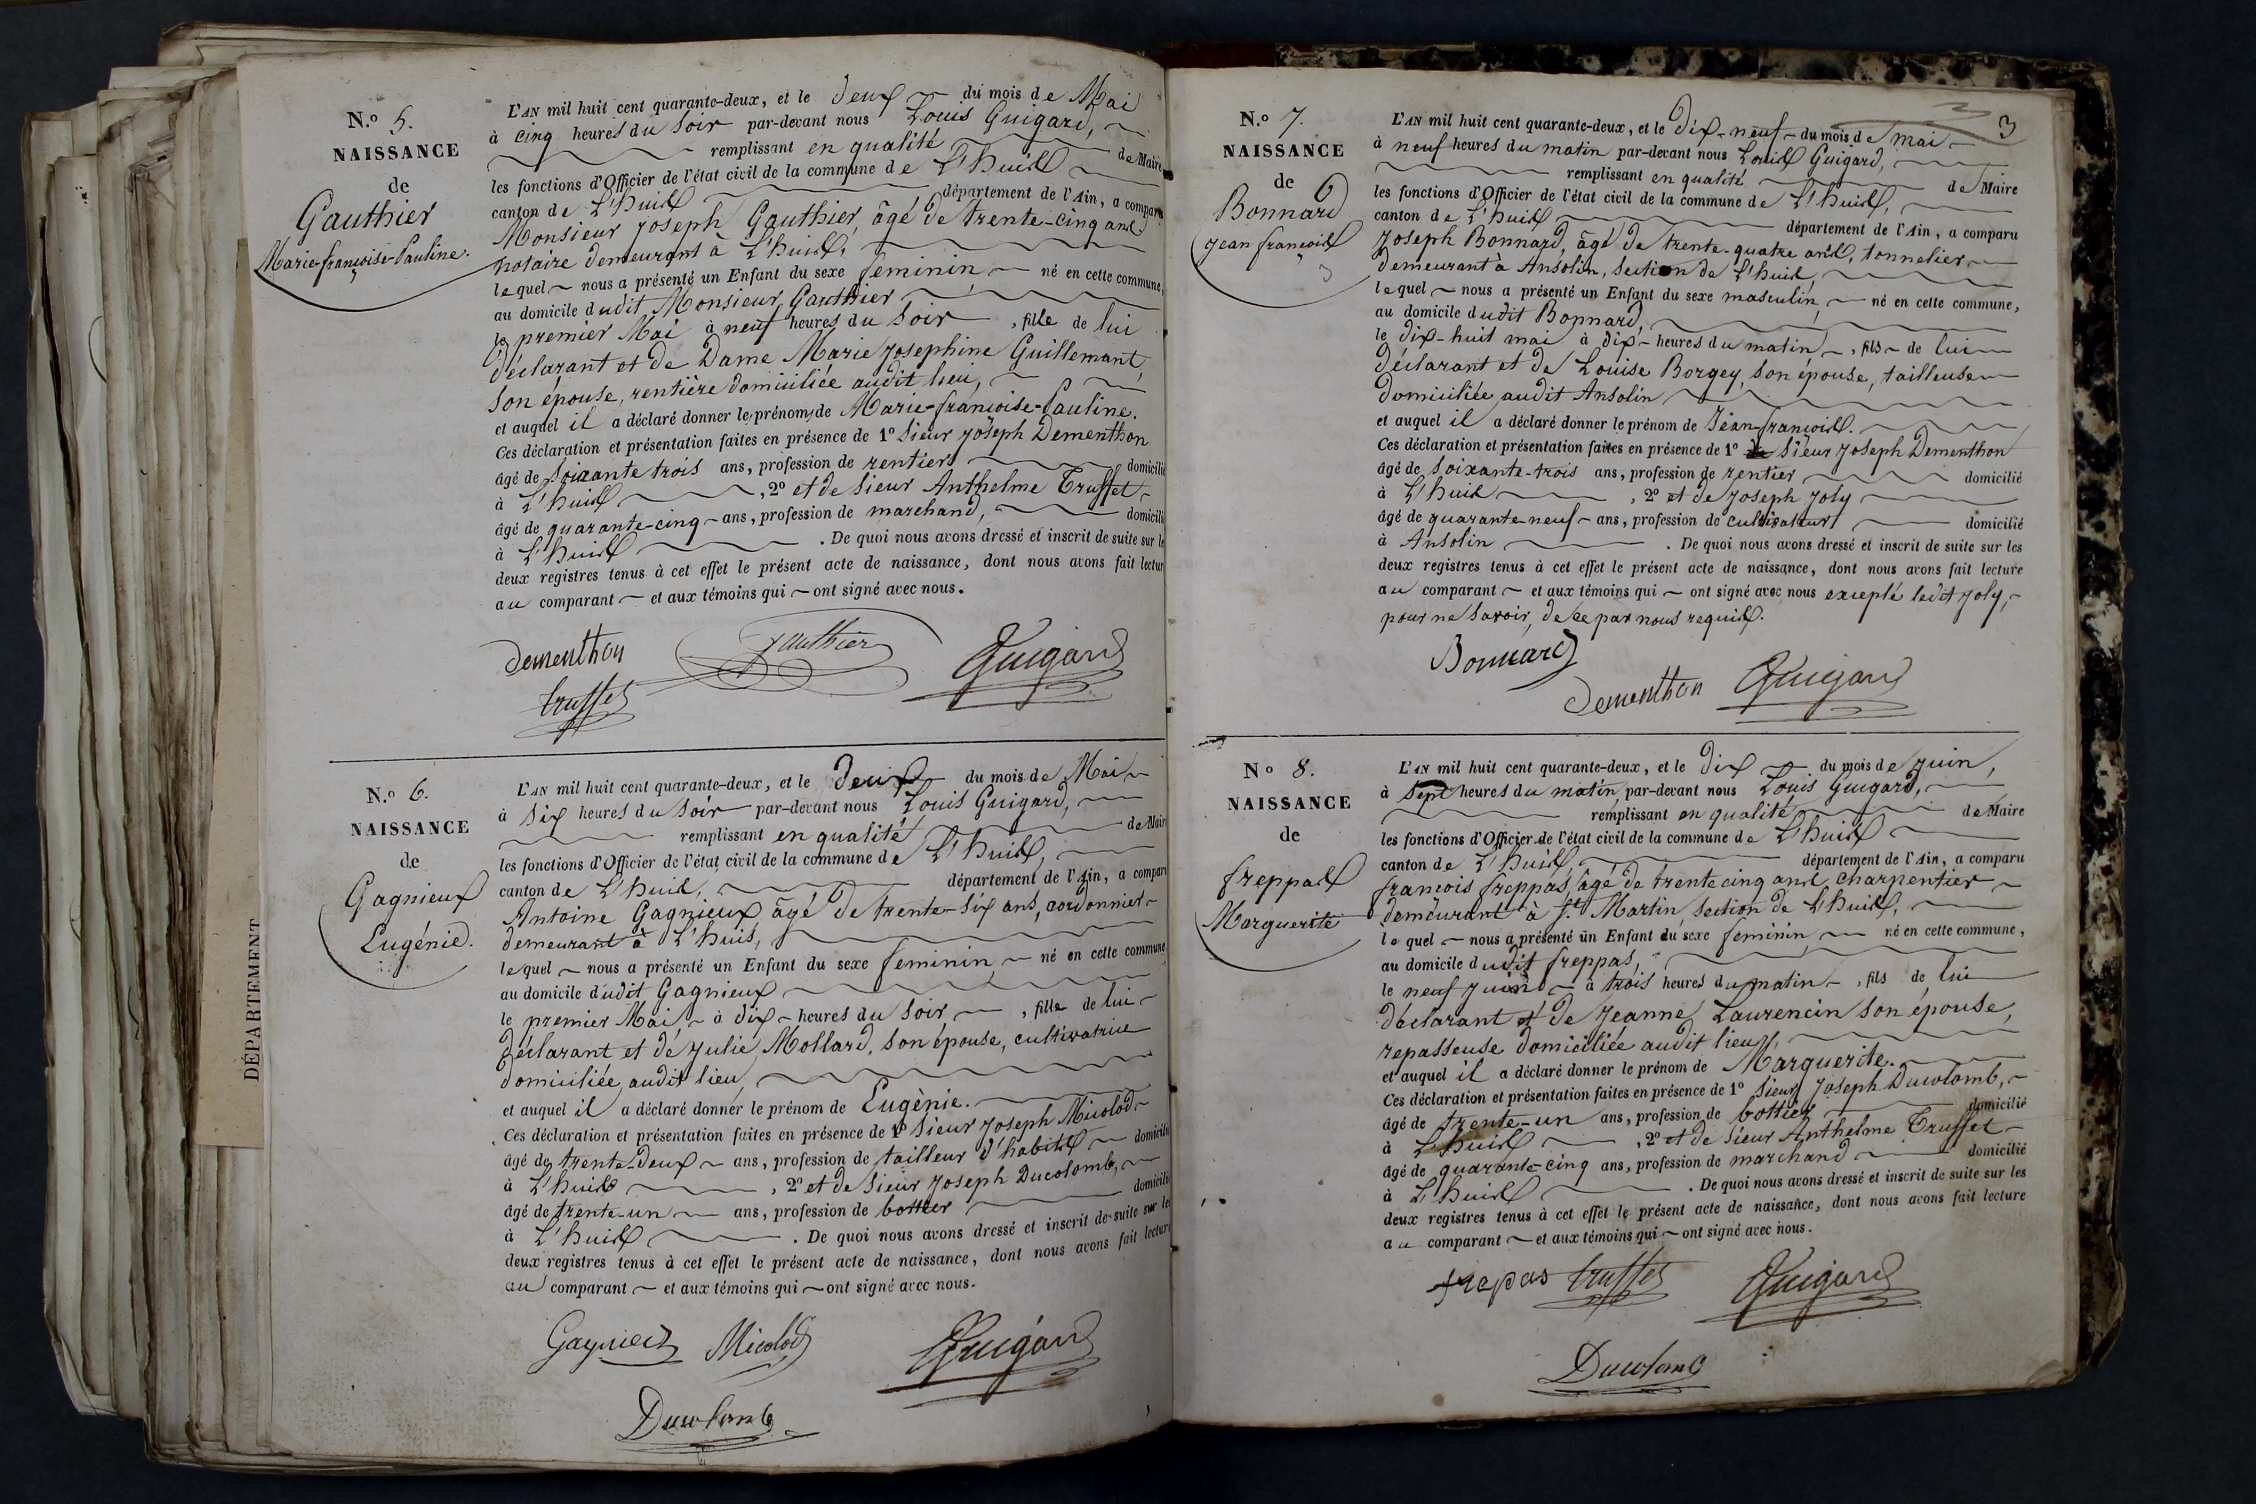 N.º 5.
NAISSANCE
de
Gauthier
Marie-françoise-Pauline.
L'AN mil huit cent quarante-deux, et le deux du mois de Mai
à cinq heures du Soir par-devant nous Louis Guigard,
remplissant en qualité de Maire
les fonctions d'Officier de l'état civil de la commune de L'huis
canton de L'huis département de l'Ain, a comparu
Monsieur Joseph Gauthier, âgé de trente-cinq ans
notaire demeurant à L'huis,
lequel nous a présenté un Enfant du sexe feminin, né en cette commune,
au domicile dudit Monsieur Gauthier
le premier Mai à neuf heures du Soir, fille de lui
déclarant et de Dame Marie Josephine Guillemant,
son épouse, rentière domiciliée audit lieu,
et auquel il a déclaré donner le prénom de Marie-françoise-Pauline.
Ces déclaration et présentation faites en présence de 1º Sieur Joseph Dementhon
âgé de soixante trois ans, profession de rentiers domicilié
à L'huis, 2º et de Sieur Anthelme Truffet
âgé de quarante-cinq ans, profession de marchand, domicilié
à L'huis. De quoi nous avons dressé et inscrit de suite sur le
deux registres tenus à cet effet le présent acte de naissance, dont nous avons fait lectur
au comparant et aux témoins qui ont signé avec nous.
Dementhon Gauthier Guigard
truffet
N.º 6.
NAISSANCE
de
Gagnieux
Eugénie.
L'AN mil huit cent quarante-deux, et le deux du mois de Mai
à six heures du Soir par-devant nous Louis Guigard,
remplissant en qualité de Maire
les fonctions d'Officier de l'état civil de la commune de L'huis,
canton de L'huis, département de l'Ain, a comparu
Antoine Gagnieux, âgé de trente-six ans, cordonnier
demeurant à L'huis,
lequel nous a présenté un Enfant du sexe feminin, né en cette commune
au domicile dudit Gagnieux
le premier Mai, à dix heures du Soir, fille de lui
déclarant et de Julie Mollard, son épouse, cultivatrice
domiciliée audit lieu,
et auquel il a déclaré donner le prénom de Eugènie.
Ces déclaration et présentation faites en présence de 1º Sieur Joseph Micolod
âgé de trente-deux ans, profession de tailleur d'habits domicilié
à L'huis, 2º et de Sieur Joseph Ducolomb,
âgé de trente-un ans, profession de bottier domicilié
à L'huis. De quoi nous avons dressé et inscrit de suite sur le
deux registres tenus à cet effet le présent acte de naissance, dont nous avons fait lecture
au comparant et aux témoins qui ont signé avec nous.
Gagnieux Micolod Guigard
Ducolomb
DÉPARTEMENT
3
N.º 7.
NAISSANCE
de
Bonnard
Jean françois
L'AN mil huit cent quarante-deux, et le Dix-neuf du mois de mai
à neuf heures du matin par-devant nous Louis Guigard,
remplissant en qualité de Maire
les fonctions d'Officier de l'état civil de la commune de L'huis,
canton de L'huis, département de l'Ain, a comparu
Joseph Bonnard, âgé de trente-quatre ans, tonnelier
demeurant à Ansolin, section de L'huis,
lequel nous a présenté un Enfant du sexe masculin, né en cette commune,
au domicile dudit Bonnard,
le dix-huit mai à dix heures du matin, fils de lui
déclarant et de Louise Borgey, son épouse, tailleuse
domiciliée audit Ansolin
et auquel il a déclaré donner le prénom de Jéan-françois.
Ces déclaration et présentation faites en présence de 1º Sieur Joseph Dementhon
âgé de soixante-trois ans, profession de rentier domicilié
à L'huis, 2º et de Joseph Joly
âgé de quarante-neuf ans, profession de cultivateur domicilié
à Ansolin. De quoi nous avons dressé et inscrit de suite sur les
deux registres tenus à cet effet le présent acte de naissance, dont nous avons fait lecture
au comparant et aux témoins qui ont signé avec nous excepté ledit Joly,
pour ne savoir, de ce par nous requis.
Bonnard
Dementhon Guigard
Nº 8.
NAISSANCE
de
freppas
Marguerite
L'AN mil huit cent quarante-deux, et le Dix du mois de Juin,
à sept heures du matin par-devant nous Louis Guigard,
remplissant en qualité de Maire
les fonctions d'Officier de l'état civil de la commune de L'huis
canton de L'huis, département de l'Ain, a comparu
françois freppas, âgé de trente cinq ans charpentier
demeurant à St Martin section de L'huis,
lequel nous a présenté un Enfant du sexe feminin, né en cette commune,
au domicile dudit freppas,
le neuf Juin à trois heures du matin, fils de lui
déclarant et de Jeanne Laurencin son épouse,
repasseuse domiciliée audit lieu,
et auquel il a déclaré donner le prénom de Marguerite.
Ces déclaration et présentation faites en présence de 1º Sieur Joseph Ducolomb,
âgé de trente-un ans, profession de bottier domicilié
à L'huis, 2º et de Sieur Anthelme Truffet
âgé de quarante-cinq ans, profession de marchand domicilié
à L'huis. De quoi nous avons dressé et inscrit de suite sur les
deux registres tenus à cet effet le présent acte de naissance, dont nous avons fait lecture
au comparant et aux témoins qui ont signé avec nous.
frepas truffet Guigard
Ducolomb